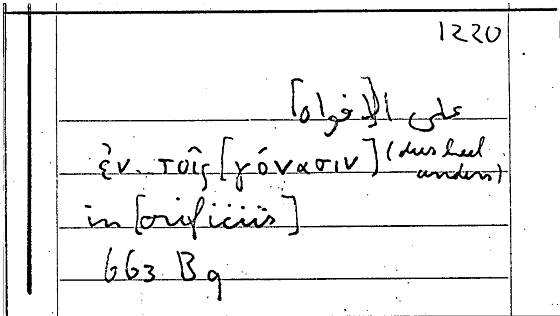 1220
على ا[لافواه]
ἐν τοῖς [γόνασιν] (dus heel anders)
in [orificiis]
663 B 9